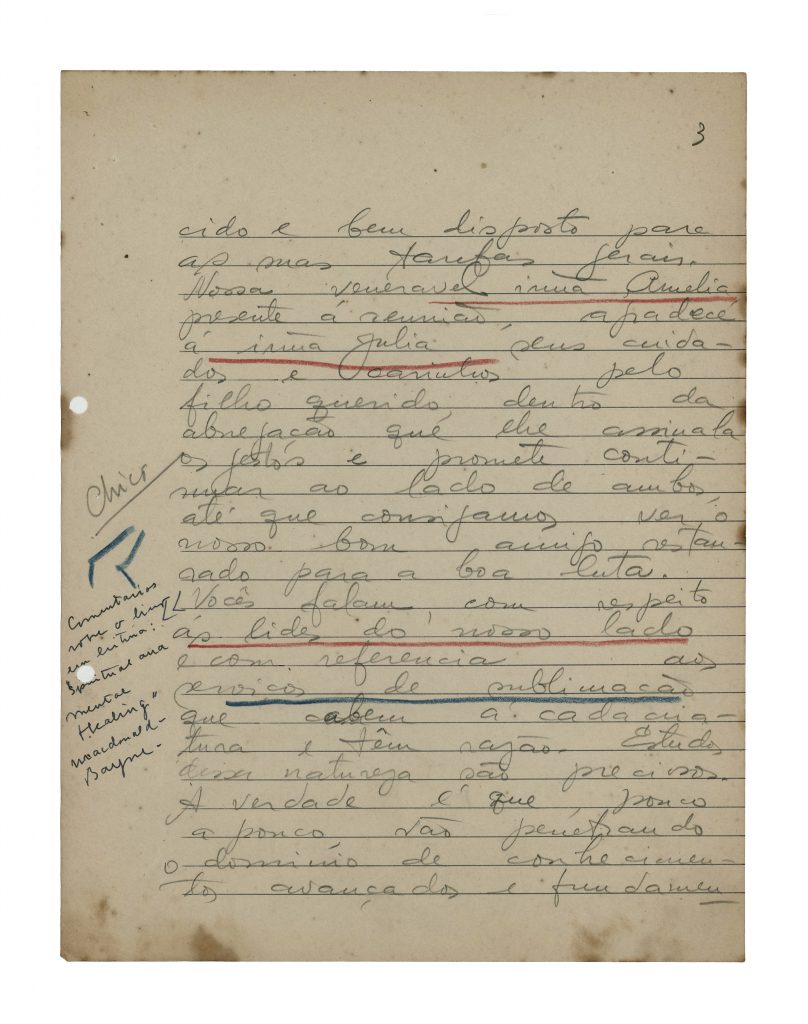 3
cido e bem disposto para
as suas tarefas gerais.
Nossa veneravel irmã Amelia,
presente á reunião, agradece
á irmã Julia seus cuida-
dos e carinhos pelo
filho querido, dentro da
abnegação que lhe assinala
os gestos e promete conti-
nuar ao lado de ambos,
até que consigamos ver o
nosso bom amigo restau-
rado para a boa luta.
Vocês falam, com respeito
ás lides do nosso lado
e com referencia aos
serviços de sublimação
que cabem a cada cria-
tura e têm razão. Estudos
dessa natureza são precisos.
A verdade é que, pouco
a pouco, vão penetrando
o dominio de conhecimen-
tos avançados e fundamen
Chico
Comentarios
sobre o livro
em leitura:
"Spiritual and
mental
Healing"
Macdonald-
Bayne-